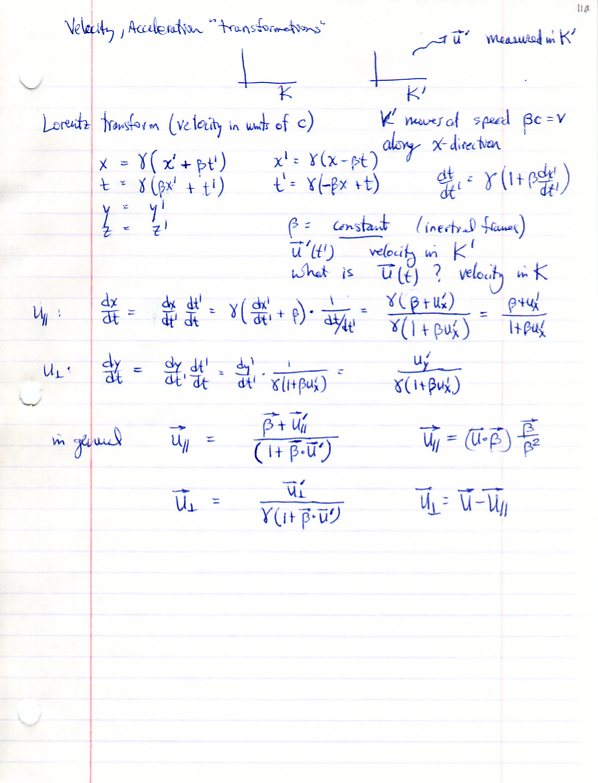 11a
Velocity, Acceleration "transformations"
u⃗' measured in K'
K K'
Lorentz transform (velocity in units of c) K' moves at speed βc = v
along x-direction
x = γ(x' + βt') x' = γ(x - βt)
t = γ(βx' + t') t' = γ(-βx + t) dt/dt' = γ(1 + β dx'/dt')
y = y'
z = z'
β = constant (inertial frames)
u⃗'(t') velocity in K'
what is u⃗(t) ? velocity in K
u∥ : dx/dt = dx/dt' dt'/dt = γ(dx'/dt' + β) · 1/(dt/dt') = γ(β + u'x)/γ(1 + βu'x) = (β + u'x)/(1 + βu'x)
u⊥ : dy/dt = dy/dt' dt'/dt = dy'/dt' · 1/γ(1+βu'x) = u'y/γ(1+βu'x)
in general u⃗∥ = (β⃗ + u⃗'∥)/(1 + β⃗·u⃗') u⃗∥ = (u⃗·β⃗) β⃗/β²
u⃗⊥ = u⃗'⊥/γ(1 + β⃗·u⃗') u⃗⊥ = u⃗ - u⃗∥